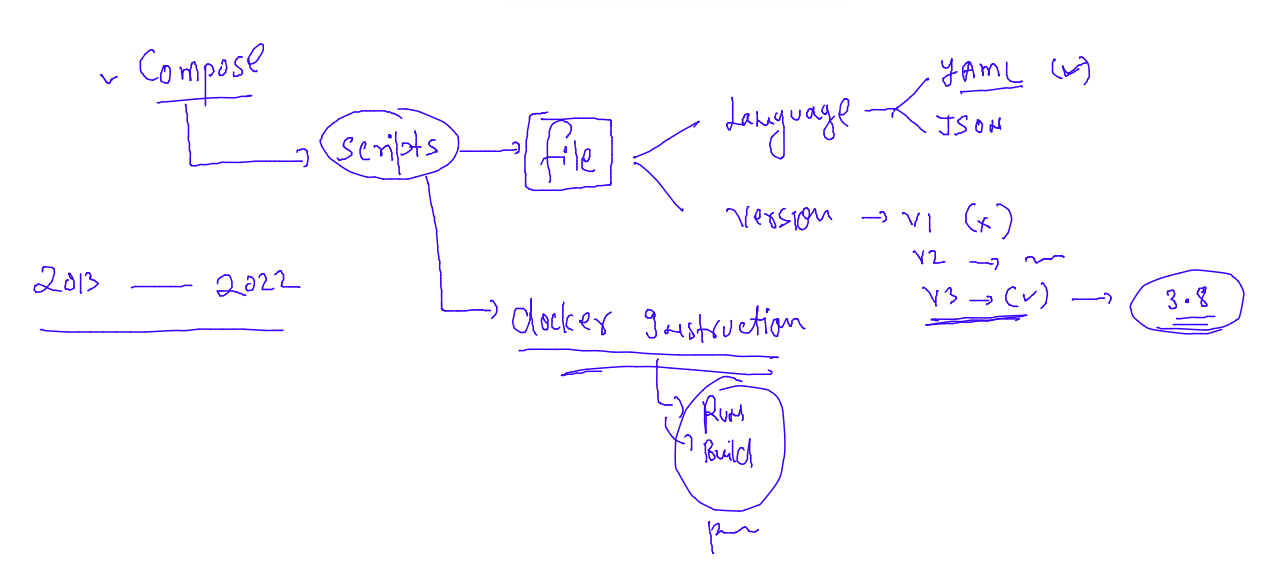 ✓ Compose
scripts
file
Language
YAML (✓)
JSON
Version → v1 (x)
v2 →
v3 → (✓) → 3.8
2013 — 2022
docker Instruction
Run
Build